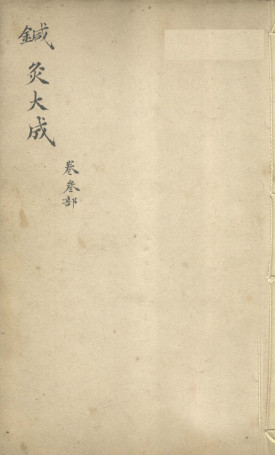 鍼灸大成
卷叁部